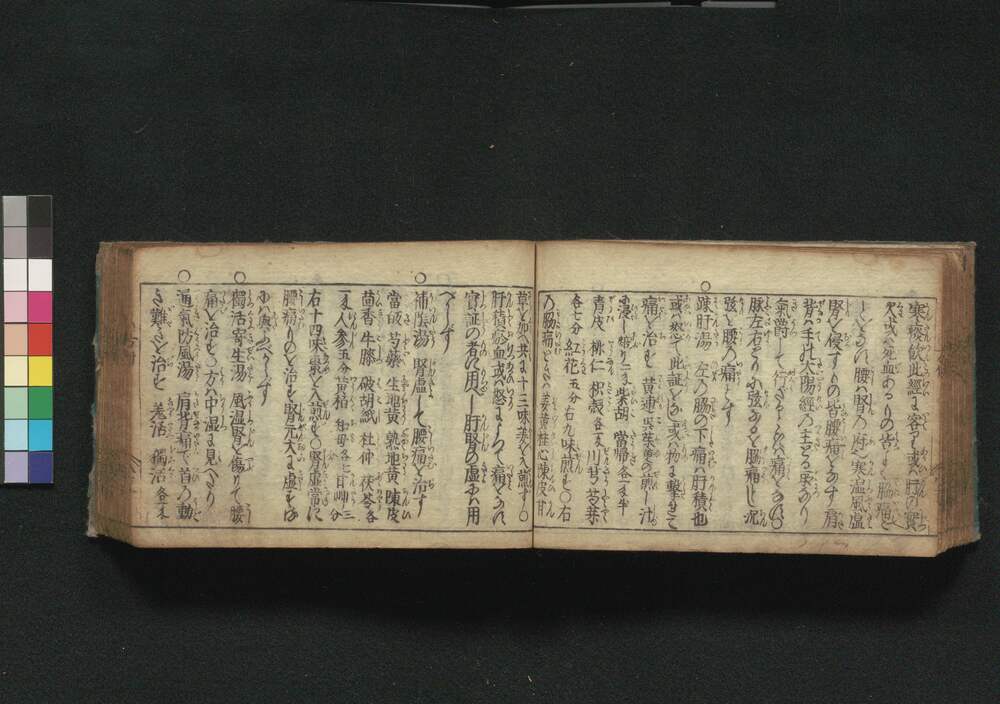 寒痰飲此經に客り或ハ肝の實
火或ハ死血あるもの皆よく脇痛を
なすなり腰ハ腎の府寒温風虚
腎を侵すもの皆腰痛をなす肩
背ハ手足太陽經の主どる処なり
氣鬱して行ざるゆへ痛をなす
脉左右ともに弦なるを脇痛とし沉
弦を腰の痛とす
○疎肝湯 左の脇の下痛ハ肝積也
或ハ怒て此証をなし或ハ物に撃せて
痛を治す 黄連 呉茱萸の煎し汁
に浸し炒り二匁 柴胡 當帰 各一匁半
青皮 桃仁 枳殻 各一匁 川芎 芍薬
各七分 紅花 五分 右九味煎す○右
の脇痛むときハ姜黄桂心陳皮甘
草を加へ共に十三味姜を入煎す○
肝積瘀血或ハ怒によつて痛をなし
實証の者に用べし肝腎の虚にハ用
べからず
○補陰湯 腎虚して腰痛を治す
當皈 芍薬 生地黄 熟地黄 陳皮
茴香 牛膝 破胡紙 杜仲 茯苓 各
一匁 人参 五分 黄栢 知母 各七分 甘艸 三分
右十四味棗を入煎す○腎虚常に
腰痛ものを治す腎元大に虚する
にハ與ふべからず
○獨活寄生湯 風温腎を傷りて腰
痛を治す此方ハ中湿に見へたり
○通氣防風湯 肩背痛で首の動
き難きを治す 羗活 獨活 各一匁